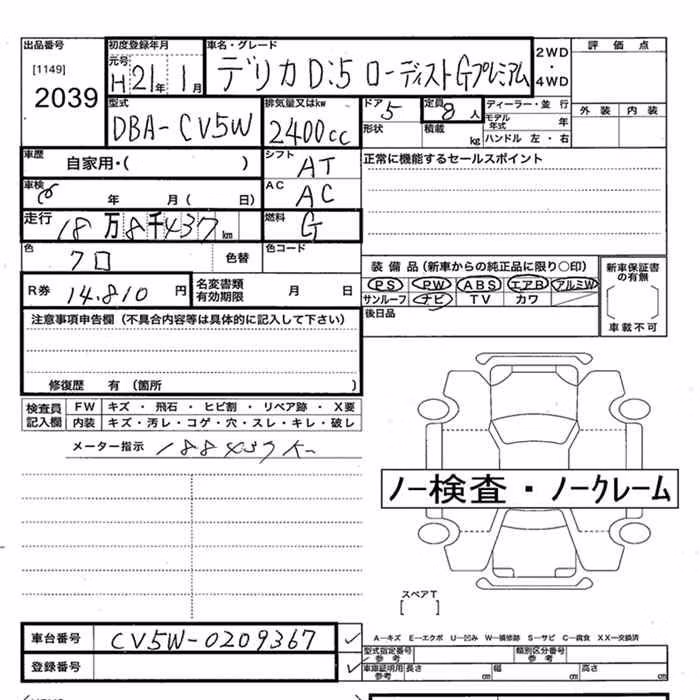 出品番号
[1149]
2039
初度登録年月
元号
H 21年 1月
車名・グレード
デリカD:5 ローディストGプレミアム
2WD・4WD
評価点
外装 内装
型式
DBA-CV5W
排気量又はkw
2400cc
ドア 5
定員 8人
ディーラー・並行
モデル年式 年
形状
積載 kg
ハンドル 左・右
車歴
自家用・( )
シフト AT
正常に機能するセールスポイント
車検
年 月( 日)
AC AC
走行 18万8千437km
燃料 G
色 クロ
色替
色コード
R券 14.810円
名変書類有効期限 月 日
装備品(新車からの純正品に限り○印)
PS PW ABS エアB アルミW
サンルーフ ナビ TV カワ
後日品
新車保証書の有無
車載不可
注意事項申告欄(不具合内容等は具体的に記入して下さい)
修復歴 有(箇所 )
検査員記入欄
FW キズ・飛石・ヒビ割・リペア跡・X要
内装 キズ・汚レ・コゲ・穴・スレ・キレ・破レ
メーター指示 188437K
ノー検査・ノークレーム
スペアT
[ ]
車台番号 CV5W-0209367
登録番号
A-キズ E-エクボ U-凹み W-補修跡 S-サビ C-腐食 XX-交換済
型式指定番号 参考
類別区分番号 参考
車庫証明用参考 長さ cm 幅 cm 高さ cm